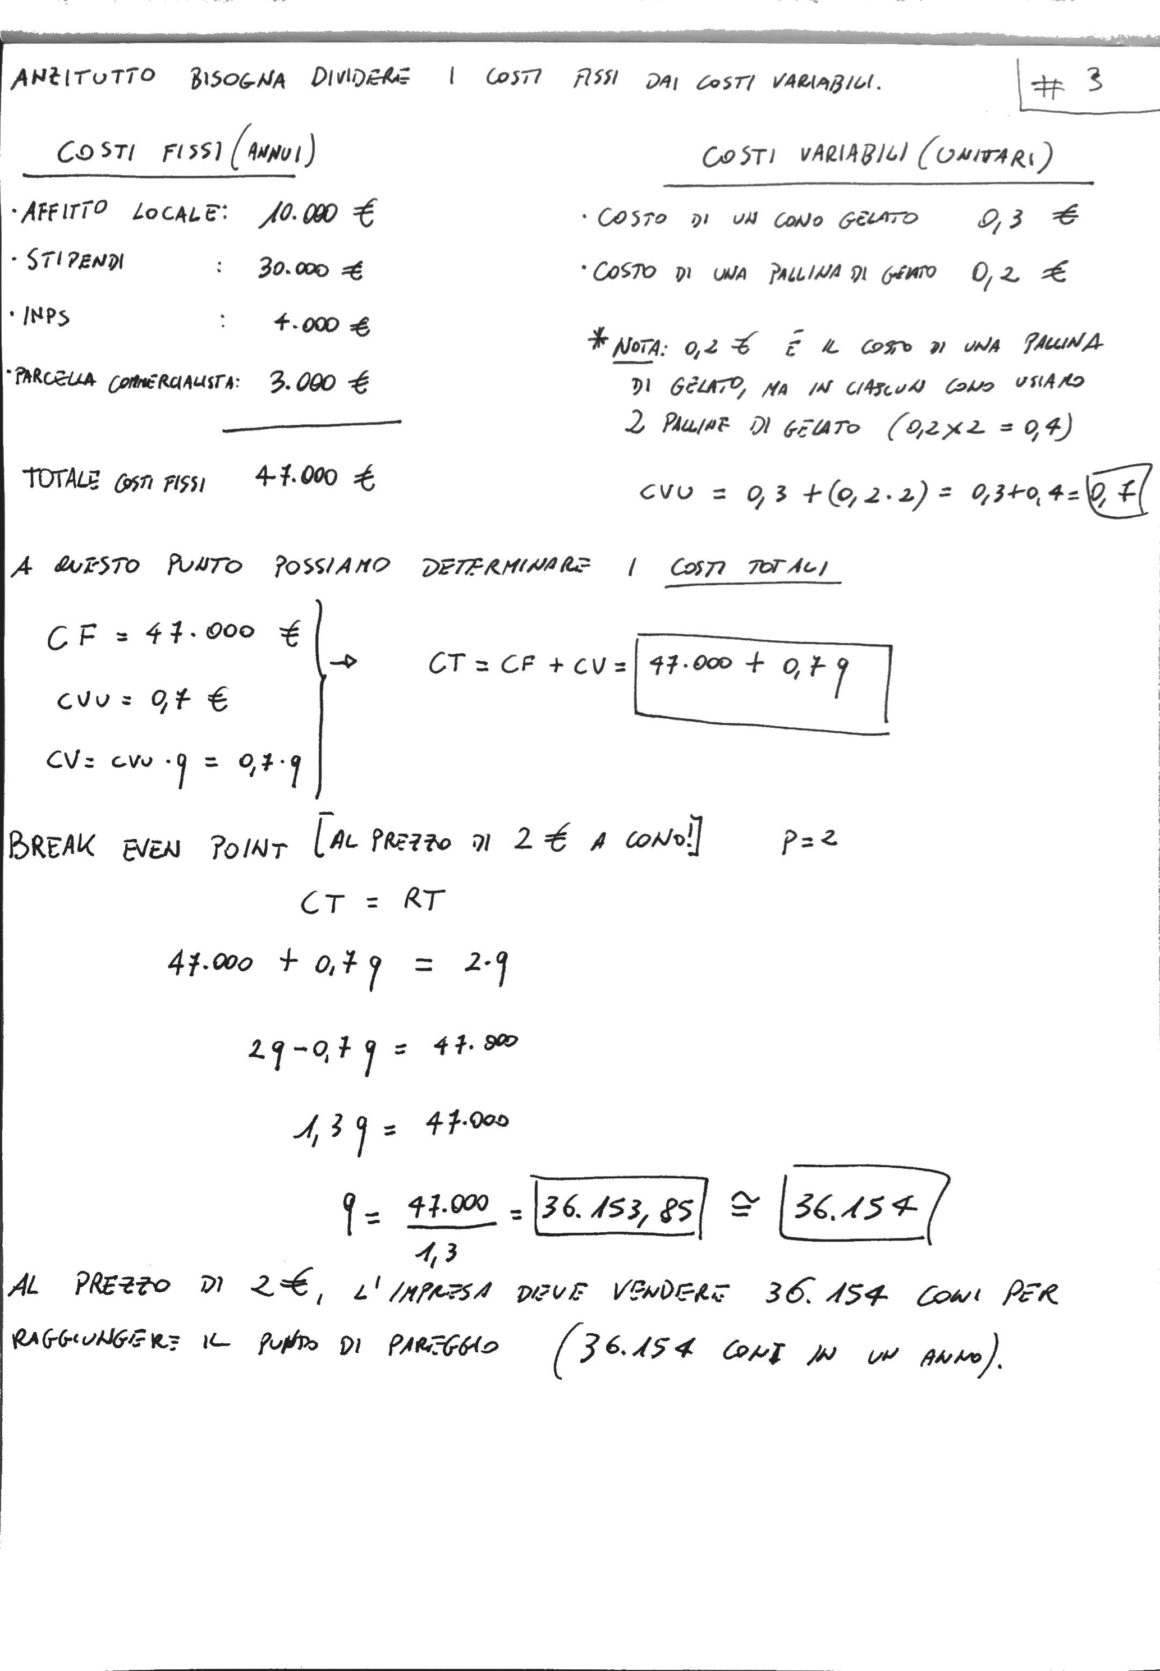 ANZITUTTO BISOGNA DIVIDERE I COSTI FISSI DAI COSTI VARIABILI.
# 3
COSTI FISSI (ANNUI)
· AFFITTO LOCALE: 10.000 €
· STIPENDI : 30.000 €
· INPS : 4.000 €
· PARCELLA COMMERCIALISTA: 3.000 €
TOTALE COSTI FISSI 47.000 €
COSTI VARIABILI (UNITARI)
· COSTO DI UN CONO GELATO 0,3 €
· COSTO DI UNA PALLINA DI GELATO 0,2 €
* NOTA: 0,2 € È IL COSTO DI UNA PALLINA
DI GELATO, MA IN CIASCUN CONO USIAMO
2 PALLINE DI GELATO (0,2 x 2 = 0,4)
CVU = 0,3 + (0,2 · 2) = 0,3 + 0,4 = 0,7
A QUESTO PUNTO POSSIAMO DETERMINARE I COSTI TOTALI
CF = 47.000 €
CVU = 0,7 €
CV = CVU · q = 0,7 · q
→ CT = CF + CV = 47.000 + 0,7 q
BREAK EVEN POINT [AL PREZZO DI 2 € A CONO!] P = 2
CT = RT
47.000 + 0,7 q = 2 · q
2 q - 0,7 q = 47.000
1,3 q = 47.000
q = 47.000 / 1,3 = 36.153,85 ≅ 36.154
AL PREZZO DI 2 €, L'IMPRESA DEVE VENDERE 36.154 CONI PER
RAGGIUNGERE IL PUNTO DI PAREGGIO (36.154 CONI IN UN ANNO).